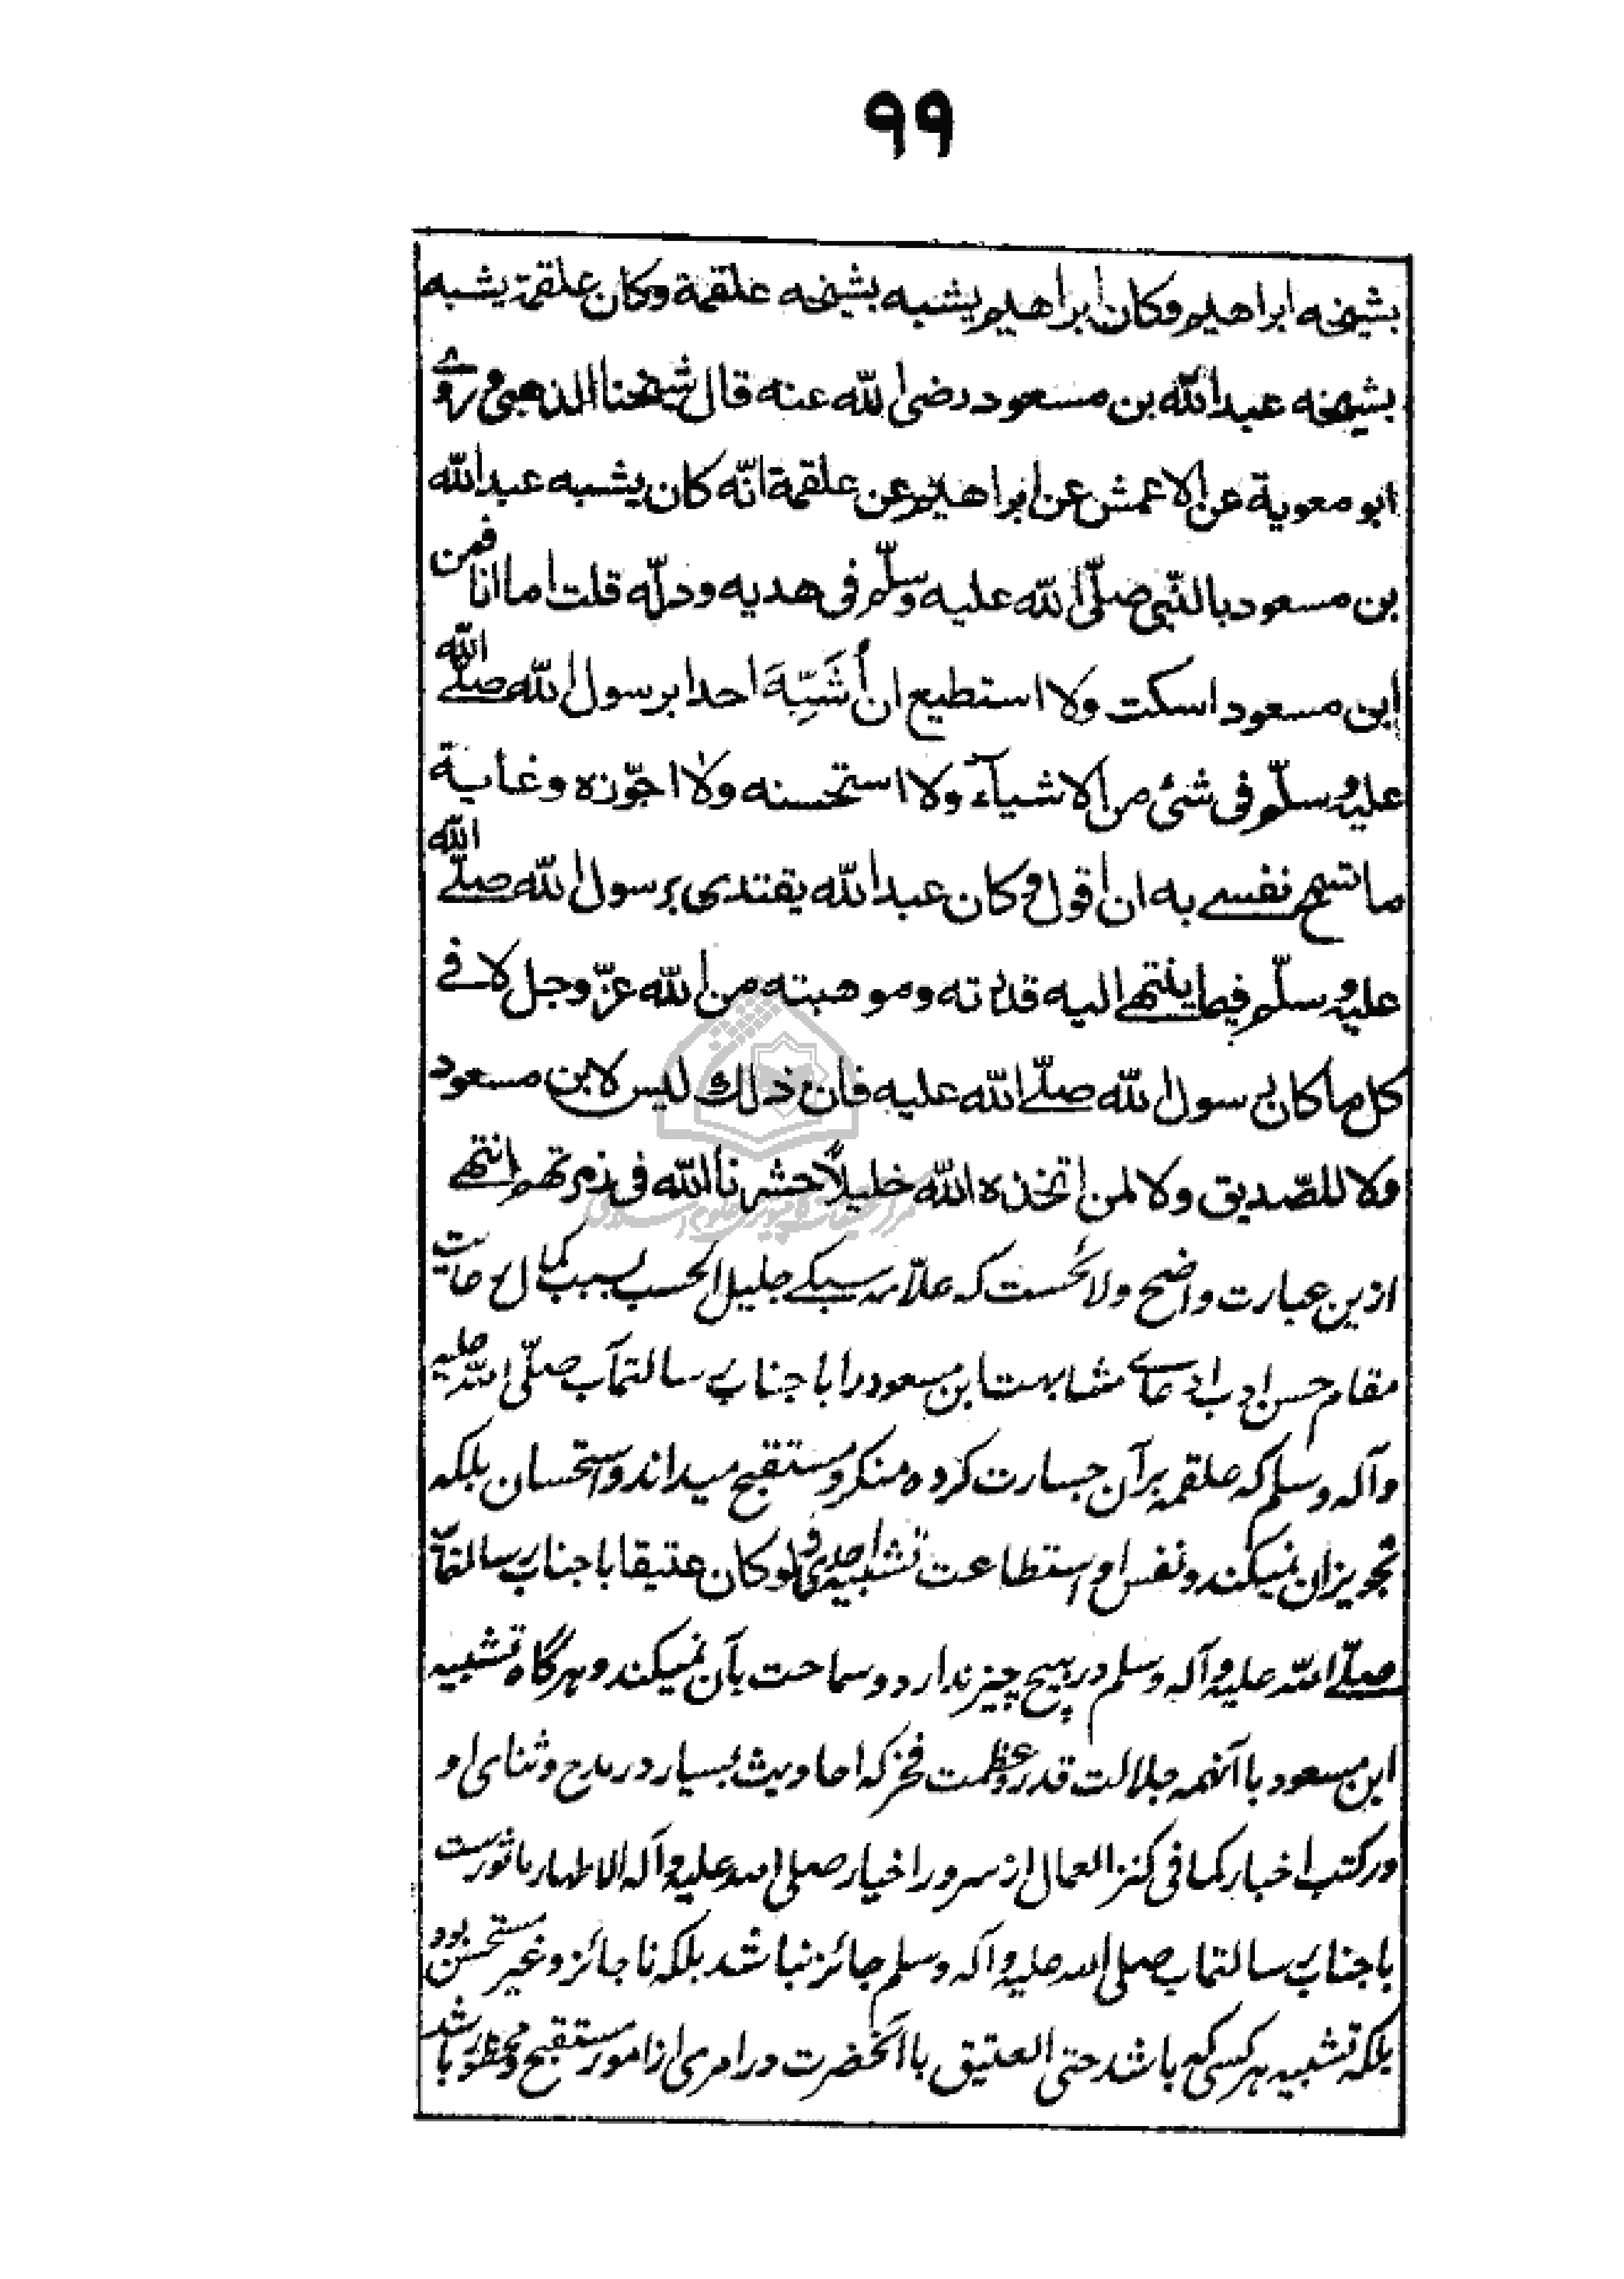 ۹۹
بشیخه ابراهیم وکان ابراهیم یشبه بشیخه علقمة وکان علقمة یشبه
بشیخه عبدالله بن مسعود رضی الله عنه قال شیخنا الذهبی و روے
ابو معویة عن الاعمش عن ابراهیم عن علقمة انّه کان یشبه عبدالله
بن مسعود بالنّبی صلّی الله علیه وسلّم فی هدیه ودلّه قلت اما انا فمن
ابن مسعود اسکت ولا استطیع ان أُشَبِّهَ احدا برسول الله صلے الله
علیه وسلّم فی شئ من الاشیآء ولا استحسنه ولا اجوّزه وغایة
ما تسمح نفسے به ان اقول وکان عبدالله یقتدی برسول الله صلّے الله
علیه وسلّم فیما ینتهے الیه قدرته وموهبته من الله عزّ وجل لا فے
کل ما کان لرسول الله صلّے الله علیه فان ذلك لیس لابن مسعود
ولا للصّدیق ولا لمن اتخذه الله خلیلاً حشرنا الله فی زمرتهم انتهے
ازین عبارت واضح ولائحست که علّامه سبکے جلیل الحسب بسبب کمال رعایت
مقام حسن ادب ادعاے مشابهت ابن مسعود را با جناب رسالتمآب صلّی الله علیه
وآله وسلم که علقمه برآن جسارت کرده منکر و مستقبح میداند و استحسان بلکه
تجویز ان نمیکند و نفس او استطاعت تشبیه احدی ولو کان عتیقا با جناب رسالتمآب
صلّے الله علیه وآله وسلم در هیچ چیز ندارد و سماحت بآن نمیکند و هرگاه تشبیه
ابن مسعود با آنهمه جلالت قدر و عظمت فخر که احادیث بسیار در مدح و ثنای او
در کتب اخبار کما فی کنز العمال از سرور اخیار صلی الله علیه وآله الاطهار ماثورست
با جناب رسالتماب صلی الله علیه وآله وسلم جائز نباشد بلکه ناجائز و غیر مستحسن بود
بلکه تشبیه هر کسی که باشد حتی العتیق با آنحضرت در امری از امور مستقبح و محظور باشد